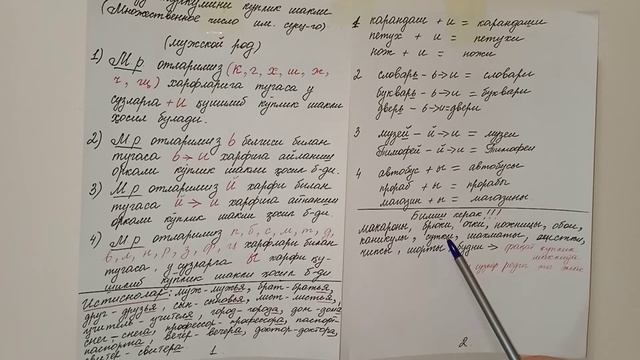 кўплик шакли
(Множественное число им. сущ-го)
(мужской род)
1) М р отларимиз (к, г, х, ш, ж,
ч, щ) харфларига тугаса у
сузларга + и қушилиб кўплик шакли
хосил булади.
2) М р отларимиз ь белгиси билан
тугаса ь → и харфига айланиш
оркали кўплик шакли хосил б-ди.
3) М р отларимиз й харфи билан
тугаса й → и харфига айланиш
оркали кўплик шакли хосил б-ди.
4) М р отларимиз п, б, с, м, т, д,
в, л, н, р, з, ф, харфлари билан
тугаса, у сузларга ы харфи қу-
шилиб кўплик шакли хосил б-ди
Истиснолар: муж-мужья, брат-братья,
друг-друзья, сын-сыновья, лист-листья,
учитель-учителя, город-города, дом-дома
снег-снега, профессор-профессора, паспорт-
паспорта, вечер-вечера, доктор-доктора,
свитер-свитера
1
1 карандаш + и = карандаши
петух + и = петухи
нож + и = ножи
2 словарь - ь→и = словари
букварь - ь→и = буквари
дверь - ь→и=двери
3 музей - й→и = музеи
Тимофей - й→и = Тимофеи
4 автобус + ы = автобусы
прораб + ы = прорабы
магазин + ы = магазины
Билиш керак!!!
макароны, брюки, очки, ножницы, обои,
каникулы, сутки, шахматы,
чипсы, шорты, будни → факат кўплик
шаклида
2